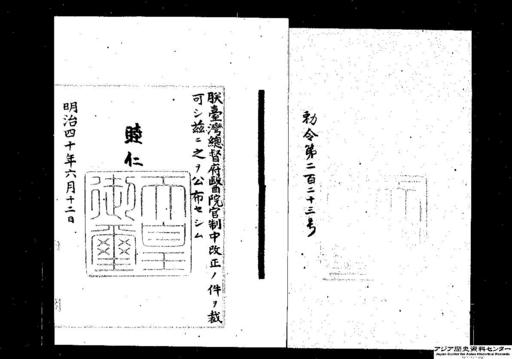 勅令第二百二十三号
朕臺灣總督府醫院官制中改正ノ件ヲ裁
可シ茲ニ之ヲ公布セシム
睦仁
天皇
御璽
明治四十年六月十二日
アジア歴史資料センター
Japan Center for Asian Historical Records